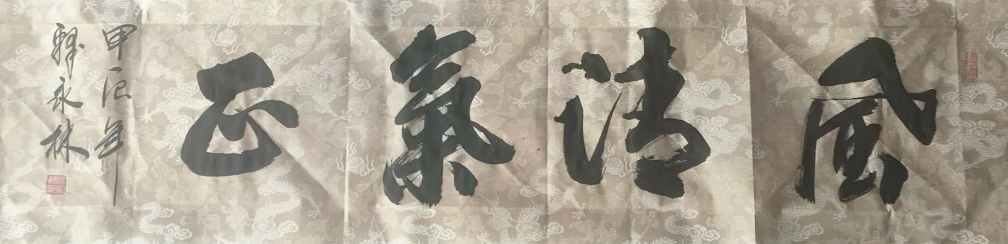 風清氣正
甲辰年
韓永林